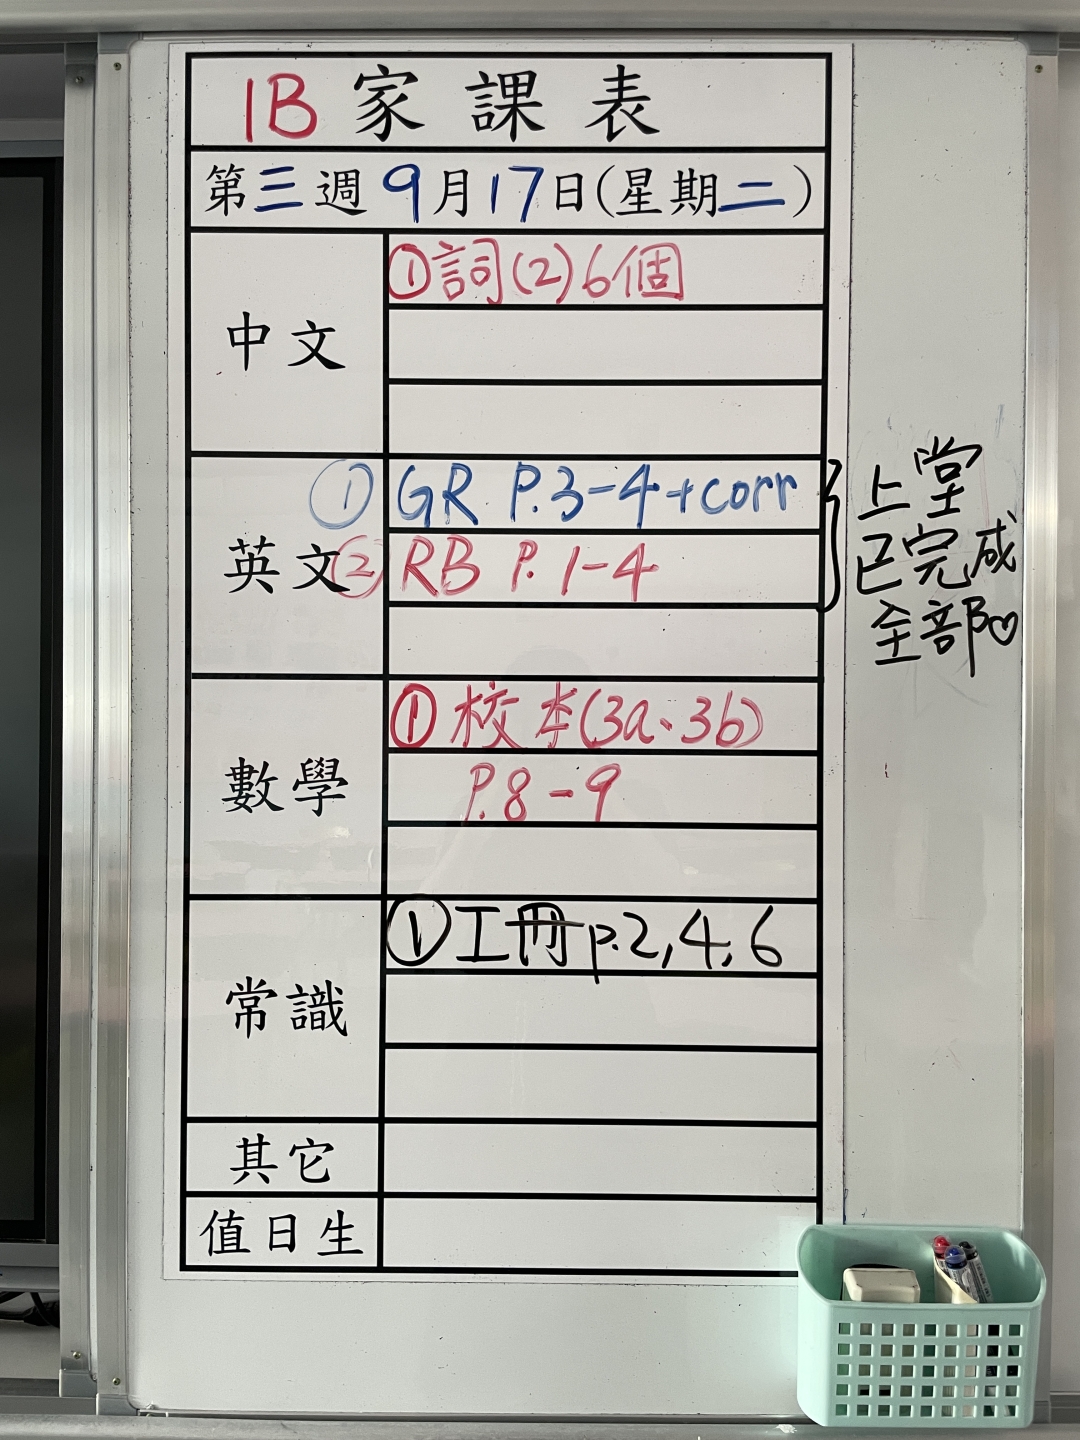 1B 家課表
第三週 9月17日(星期二)
中文
①詞(2)6個
英文
① GR P.3-4+corr
② RB P.1-4
上堂
已完成
全部♡
數學
①校本(3a、3b)
P.8-9
常識
①工冊 p.2,4,6
其它
值日生